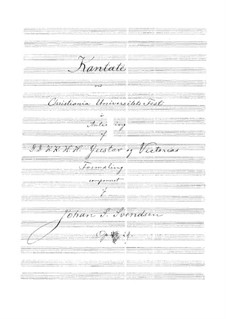 Kantate
ved
Christiania Universitets Fest
i
af
H.H.K.K.H.H. Gustav og Victorias
Formæling
componeret
af
Johan S. Svendsen
Op. 29.